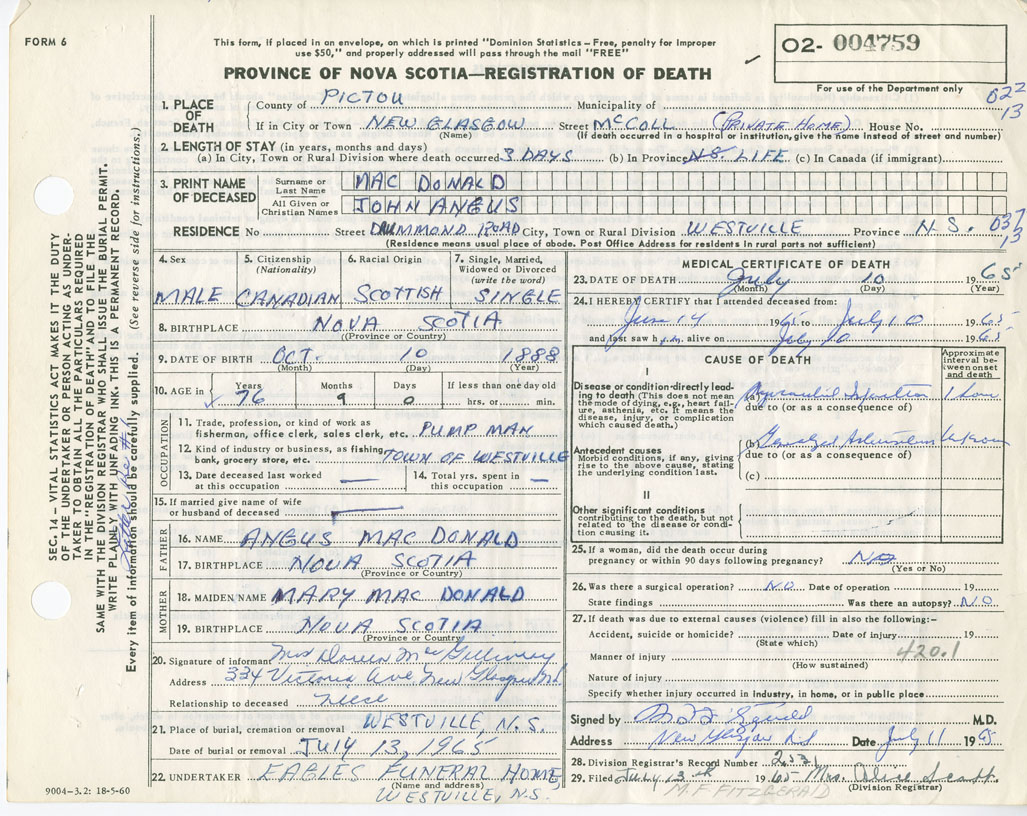 FORM 6
This form, if placed in an envelope, on which is printed "Dominion Statistics – Free, penalty for improper
use $50," and properly addressed will pass through the mail "FREE"
PROVINCE OF NOVA SCOTIA—REGISTRATION OF DEATH
02- 004759
For use of the Department only
022
13
1. PLACE OF DEATH
County of PICTOU Municipality of
If in City or Town NEW GLASGOW Street McCOLL (PRIVATE HOME) House No.
(Name) (If death occurred in a hospital or institution, give the name instead of street and number)
2. LENGTH OF STAY (in years, months and days)
(a) In City, Town or Rural Division where death occurred 3 DAYS (b) In Province N.S. LIFE (c) In Canada (if immigrant)
3. PRINT NAME OF DECEASED
Surname or Last Name MAC DONALD
All Given or Christian Names JOHN ANGUS
RESIDENCE No Street DRUMMOND ROAD City, Town or Rural Division WESTVILLE Province N.S. 037
13
(Residence means usual place of abode. Post Office Address for residents in rural parts not sufficient)
4. Sex 5. Citizenship (Nationality) 6. Racial Origin 7. Single, Married, Widowed or Divorced (write the word)
MALE CANADIAN SCOTTISH SINGLE
8. BIRTHPLACE NOVA SCOTIA
(Province or Country)
9. DATE OF BIRTH OCT. 10 1888
(Month) (Day) (Year)
10. AGE in Years Months Days If less than one day old
76 9 0 hrs. or min.
OCCUPATION
11. Trade, profession, or kind of work as
fisherman, office clerk, sales clerk, etc. PUMP MAN
12. Kind of industry or business, as fishing,
bank, grocery store, etc. TOWN OF WESTVILLE
13. Date deceased last worked at this occupation —
14. Total yrs. spent in this occupation —
15. If married give name of wife
or husband of deceased
FATHER
16. NAME ANGUS MAC DONALD
17. BIRTHPLACE NOVA SCOTIA
(Province or Country)
MOTHER
18. MAIDEN NAME MARY MAC DONALD
19. BIRTHPLACE NOVA SCOTIA
(Province or Country)
20. Signature of informant Mrs
Address 334 Victoria Ave New Glasgow
Relationship to deceased niece
21. Place of burial, cremation or removal WESTVILLE, N.S.
Date of burial or removal JULY 13, 1965
22. UNDERTAKER EAGLES FUNERAL HOME,
(Name and address)
WESTVILLE, N.S.
9004-3.2: 18-5-60
MEDICAL CERTIFICATE OF DEATH
23. DATE OF DEATH July 10 1965
(Month) (Day) (Year)
24. I HEREBY CERTIFY that I attended deceased from:
June 14 1965 to July 10 1965
and last saw h im alive on July 10 1965
CAUSE OF DEATH
Approximate interval between onset and death
I
Disease or condition directly leading to death (This does not mean the mode of dying, e.g., heart failure, asthenia, etc. It means the disease, injury, or complication which caused death.)
(a) Myocardial Infarction 1 hour
due to (or as a consequence of)
Antecedent causes
Morbid conditions, if any, giving rise to the above cause, stating the underlying condition last.
(b) Generalized
due to (or as a consequence of)
(c)
II
Other significant conditions
contributing to the death, but not related to the disease or condition causing it.
25. If a woman, did the death occur during
pregnancy or within 90 days following pregnancy? NO
(Yes or No)
26. Was there a surgical operation? NO Date of operation 19
State findings Was there an autopsy? NO
27. If death was due to external causes (violence) fill in also the following:–
Accident, suicide or homicide? Date of injury 19
(State which)
420.1
Manner of injury
(How sustained)
Nature of injury
Specify whether injury occurred in industry, in home, or in public place
Signed by M.D.
Address New Glasgow N.S Date July 11 1965
28. Division Registrar's Record Number 2531
29. Filed July 13th 1965 Mrs. Alice Scott
(Division Registrar)
M.F. FITZGERALD
SEC. 14 – VITAL STATISTICS ACT MAKES IT THE DUTY
OF THE UNDERTAKER OR PERSON ACTING AS UNDER-
TAKER TO OBTAIN ALL THE PARTICULARS REQUIRED
IN THE "REGISTRATION OF DEATH" AND TO FILE THE
SAME WITH THE DIVISION REGISTRAR WHO SHALL ISSUE THE BURIAL PERMIT.
WRITE PLAINLY WITH UNFADING INK. THIS IS A PERMANENT RECORD.
Every item of information should be carefully supplied. (See reverse side for instructions.)